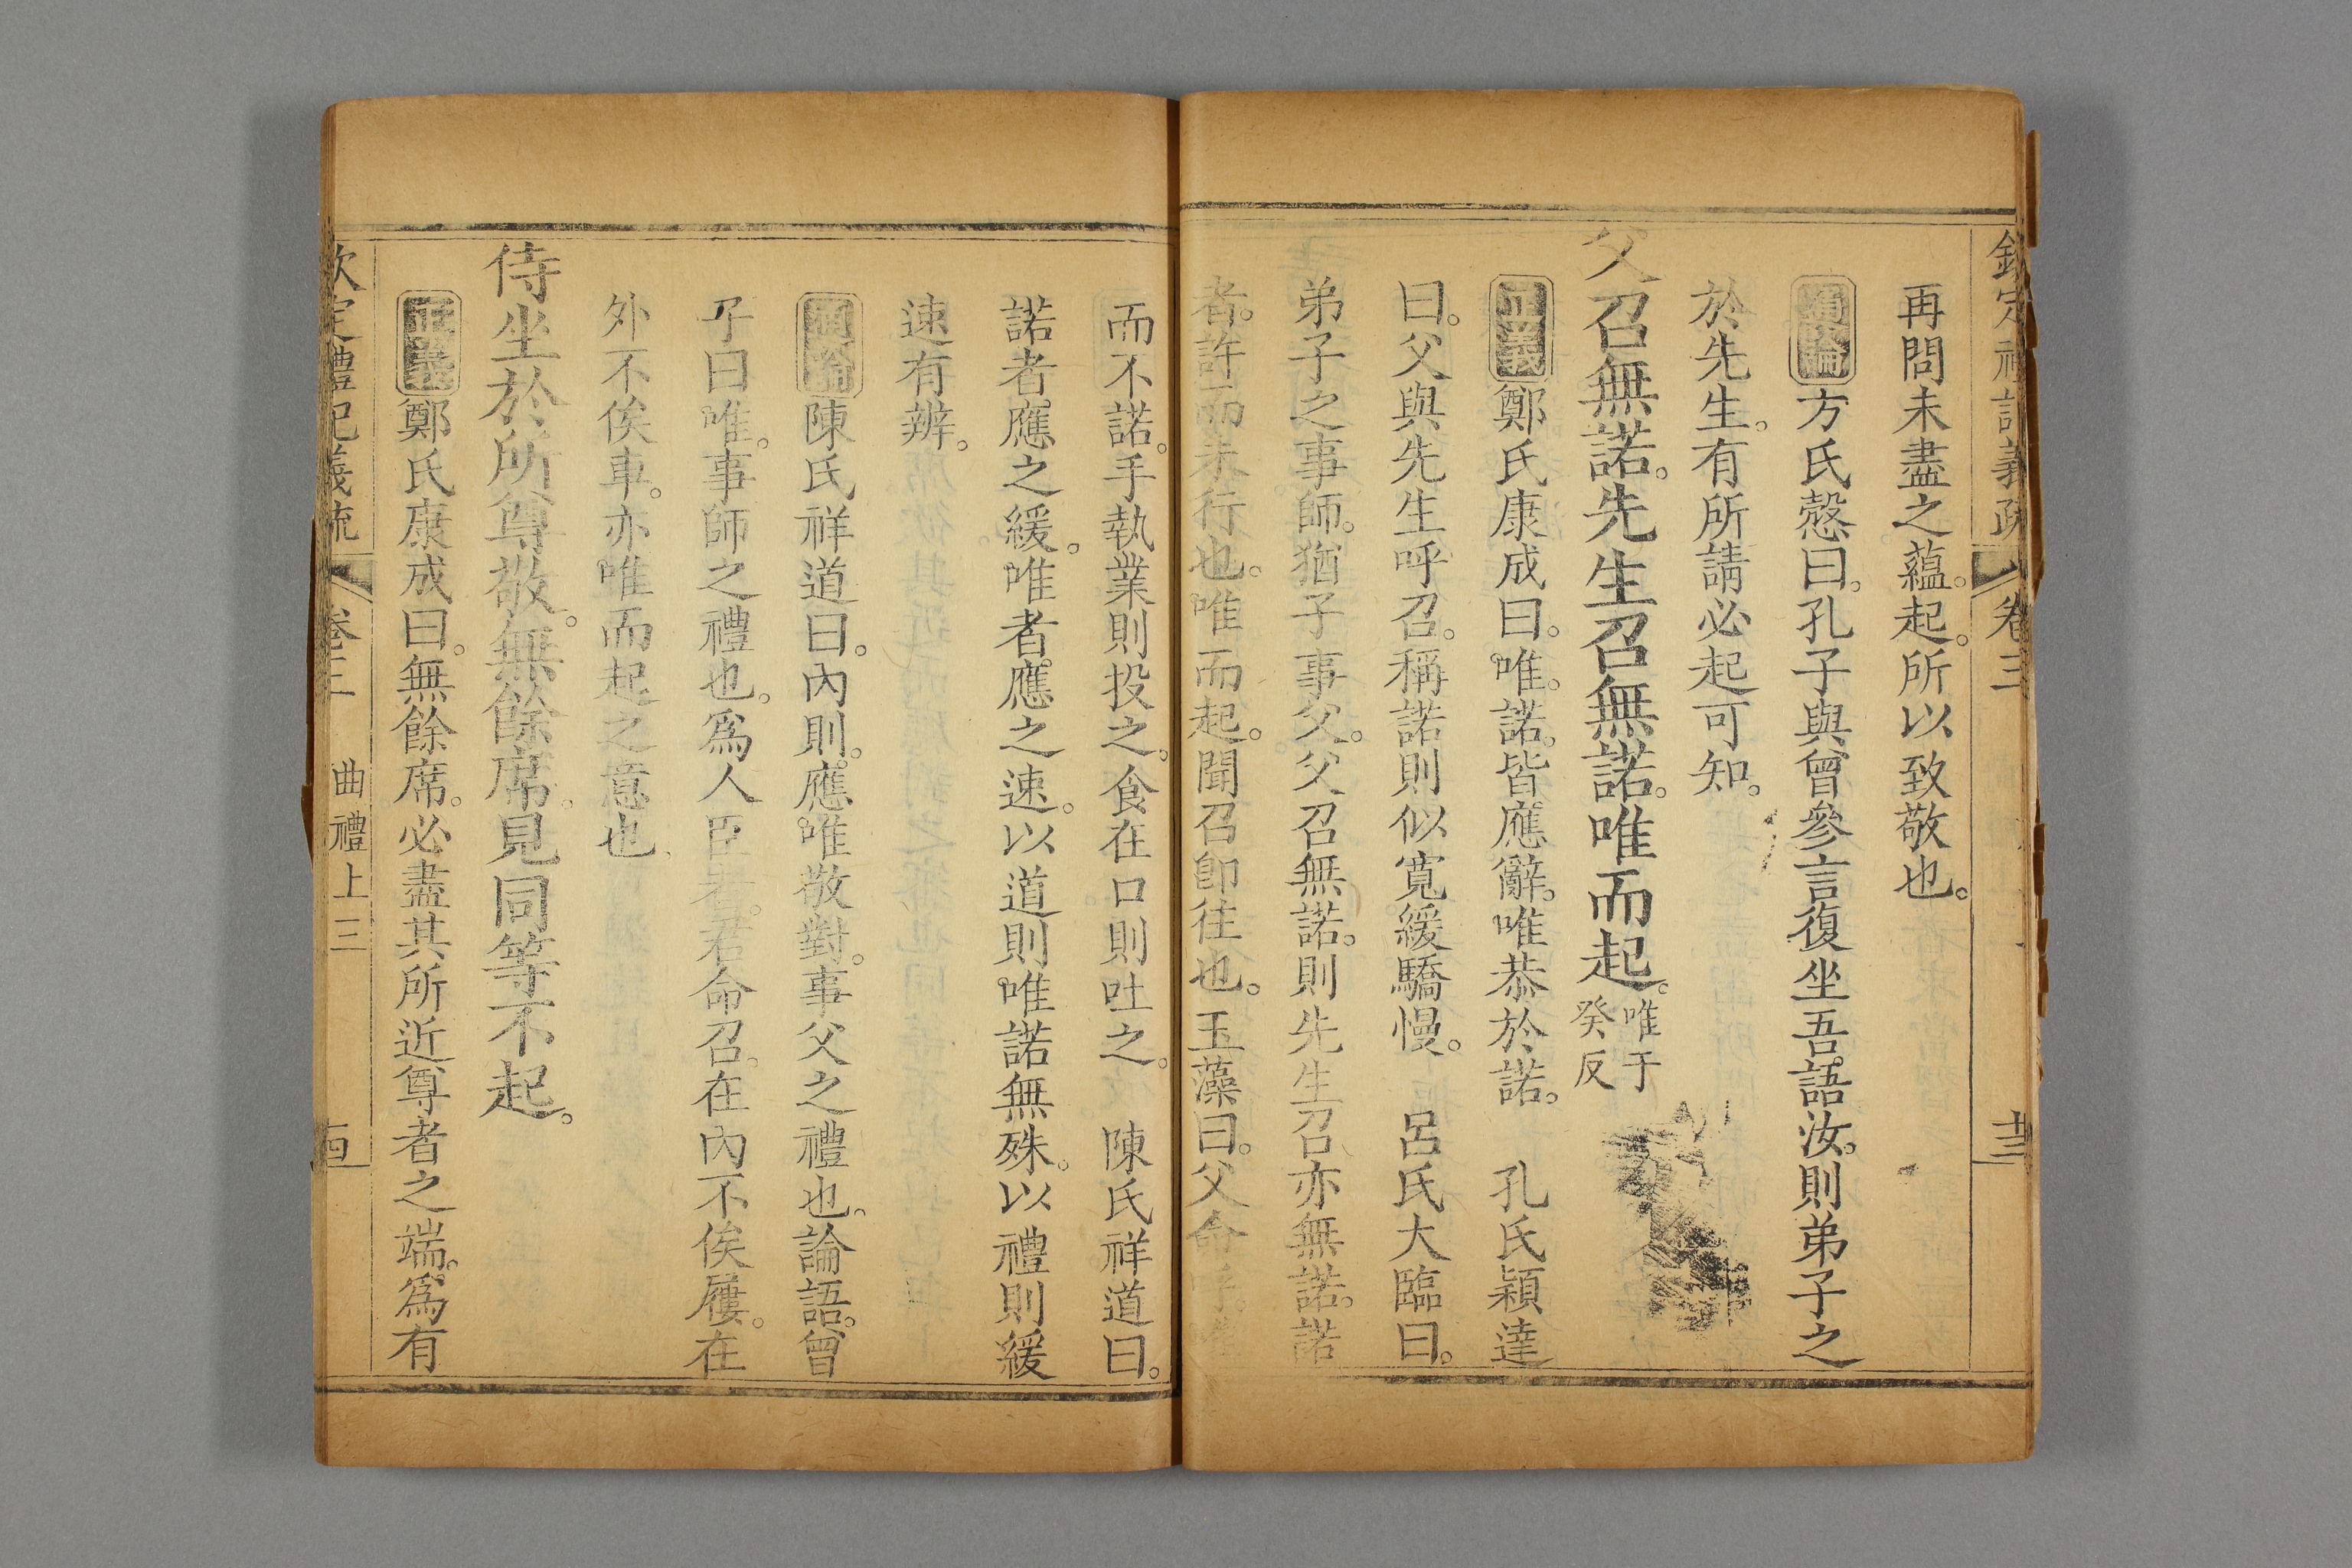 欽定禮記義疏 卷三 
再問未盡之蘊。起。所以致敬也。
通論方氏慤曰。孔子與曾參言復坐吾語汝。則弟子之
於先生。有所請必起可知。
父召無諾。先生召無諾。唯而起。唯于癸反
正義鄭氏康成曰。唯。諾。皆應辭。唯恭於諾。 孔氏穎達
曰。父與先生呼召。稱諾則似寬緩驕慢。 呂氏大臨曰。
弟子之事師。猶子事父。父召無諾。則先生召亦無諾。諾
者。許而未行也。唯而起。聞召卽往也。玉藻曰。父命呼。唯
而不諾。手執業則投之。食在口則吐之。 陳氏祥道曰。
諾者。應之緩。唯者。應之速。以道則唯諾無殊。以禮則緩
速有辨。
通論陳氏祥道曰。內則。應唯敬對。事父之禮也。論語。曾
子曰唯。事師之禮也。爲人臣者。君命召。在內不俟屨。在
外不俟車。亦唯而起之意也
侍坐於所尊敬。無餘席。見同等不起。
正義鄭氏康成曰。無餘席。必盡其所近尊者之端。爲有
欽定禮記義疏 卷三 曲禮上三